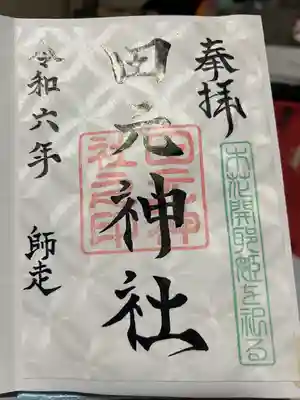 奉拝
木花開耶姫を祀る
田元神社
田元神社之印
令和六年
師走